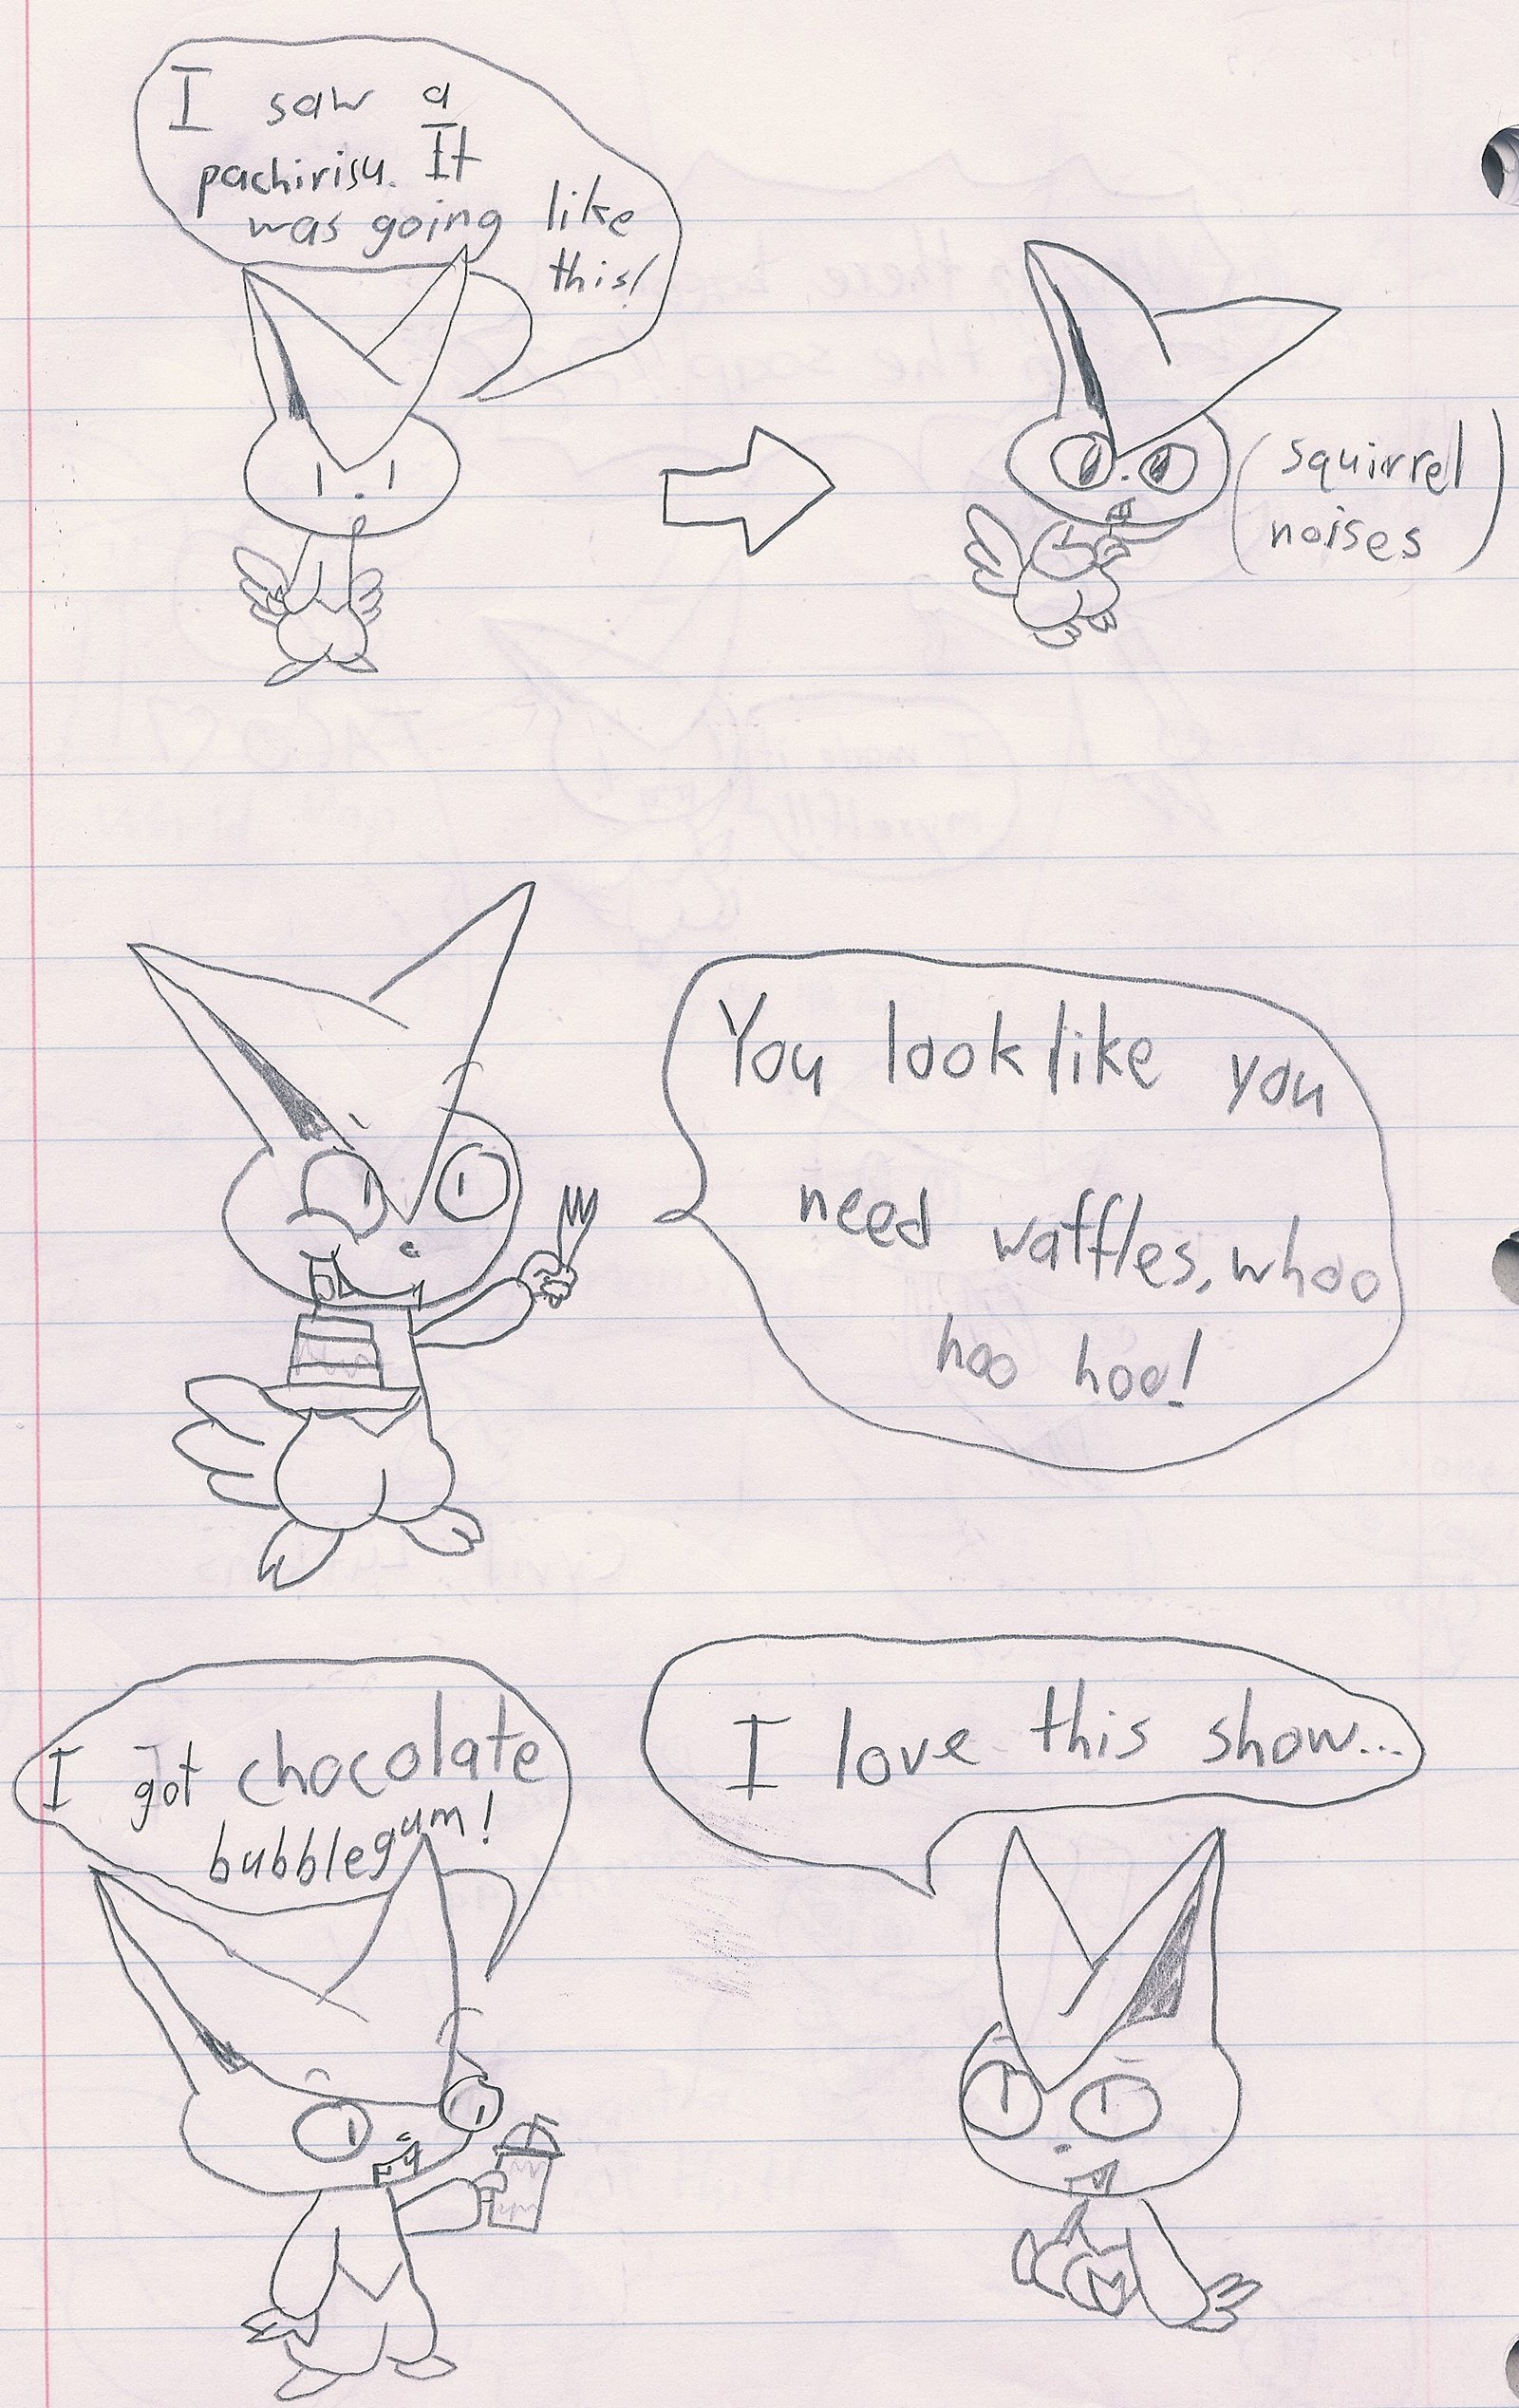 I saw a
pachirisu. It
was going like
this!
(squirrel
noises)
You look like you
need waffles, whoo
hoo hoo!
I got chocolate
bubblegum!
I love this show...